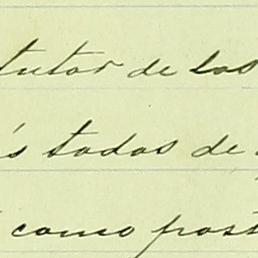 tutor de los
s todos de
como post